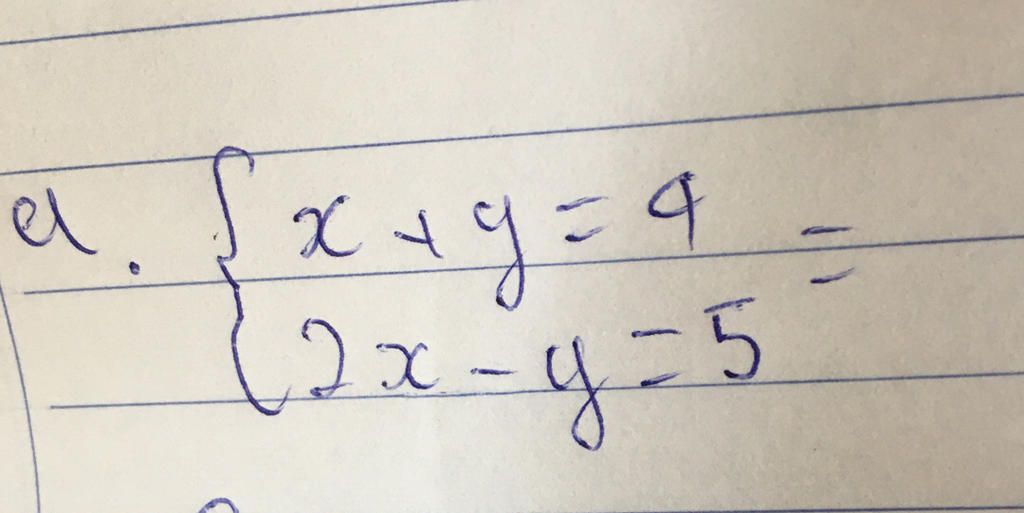 a. { x + y = 4 =
2x - y = 5